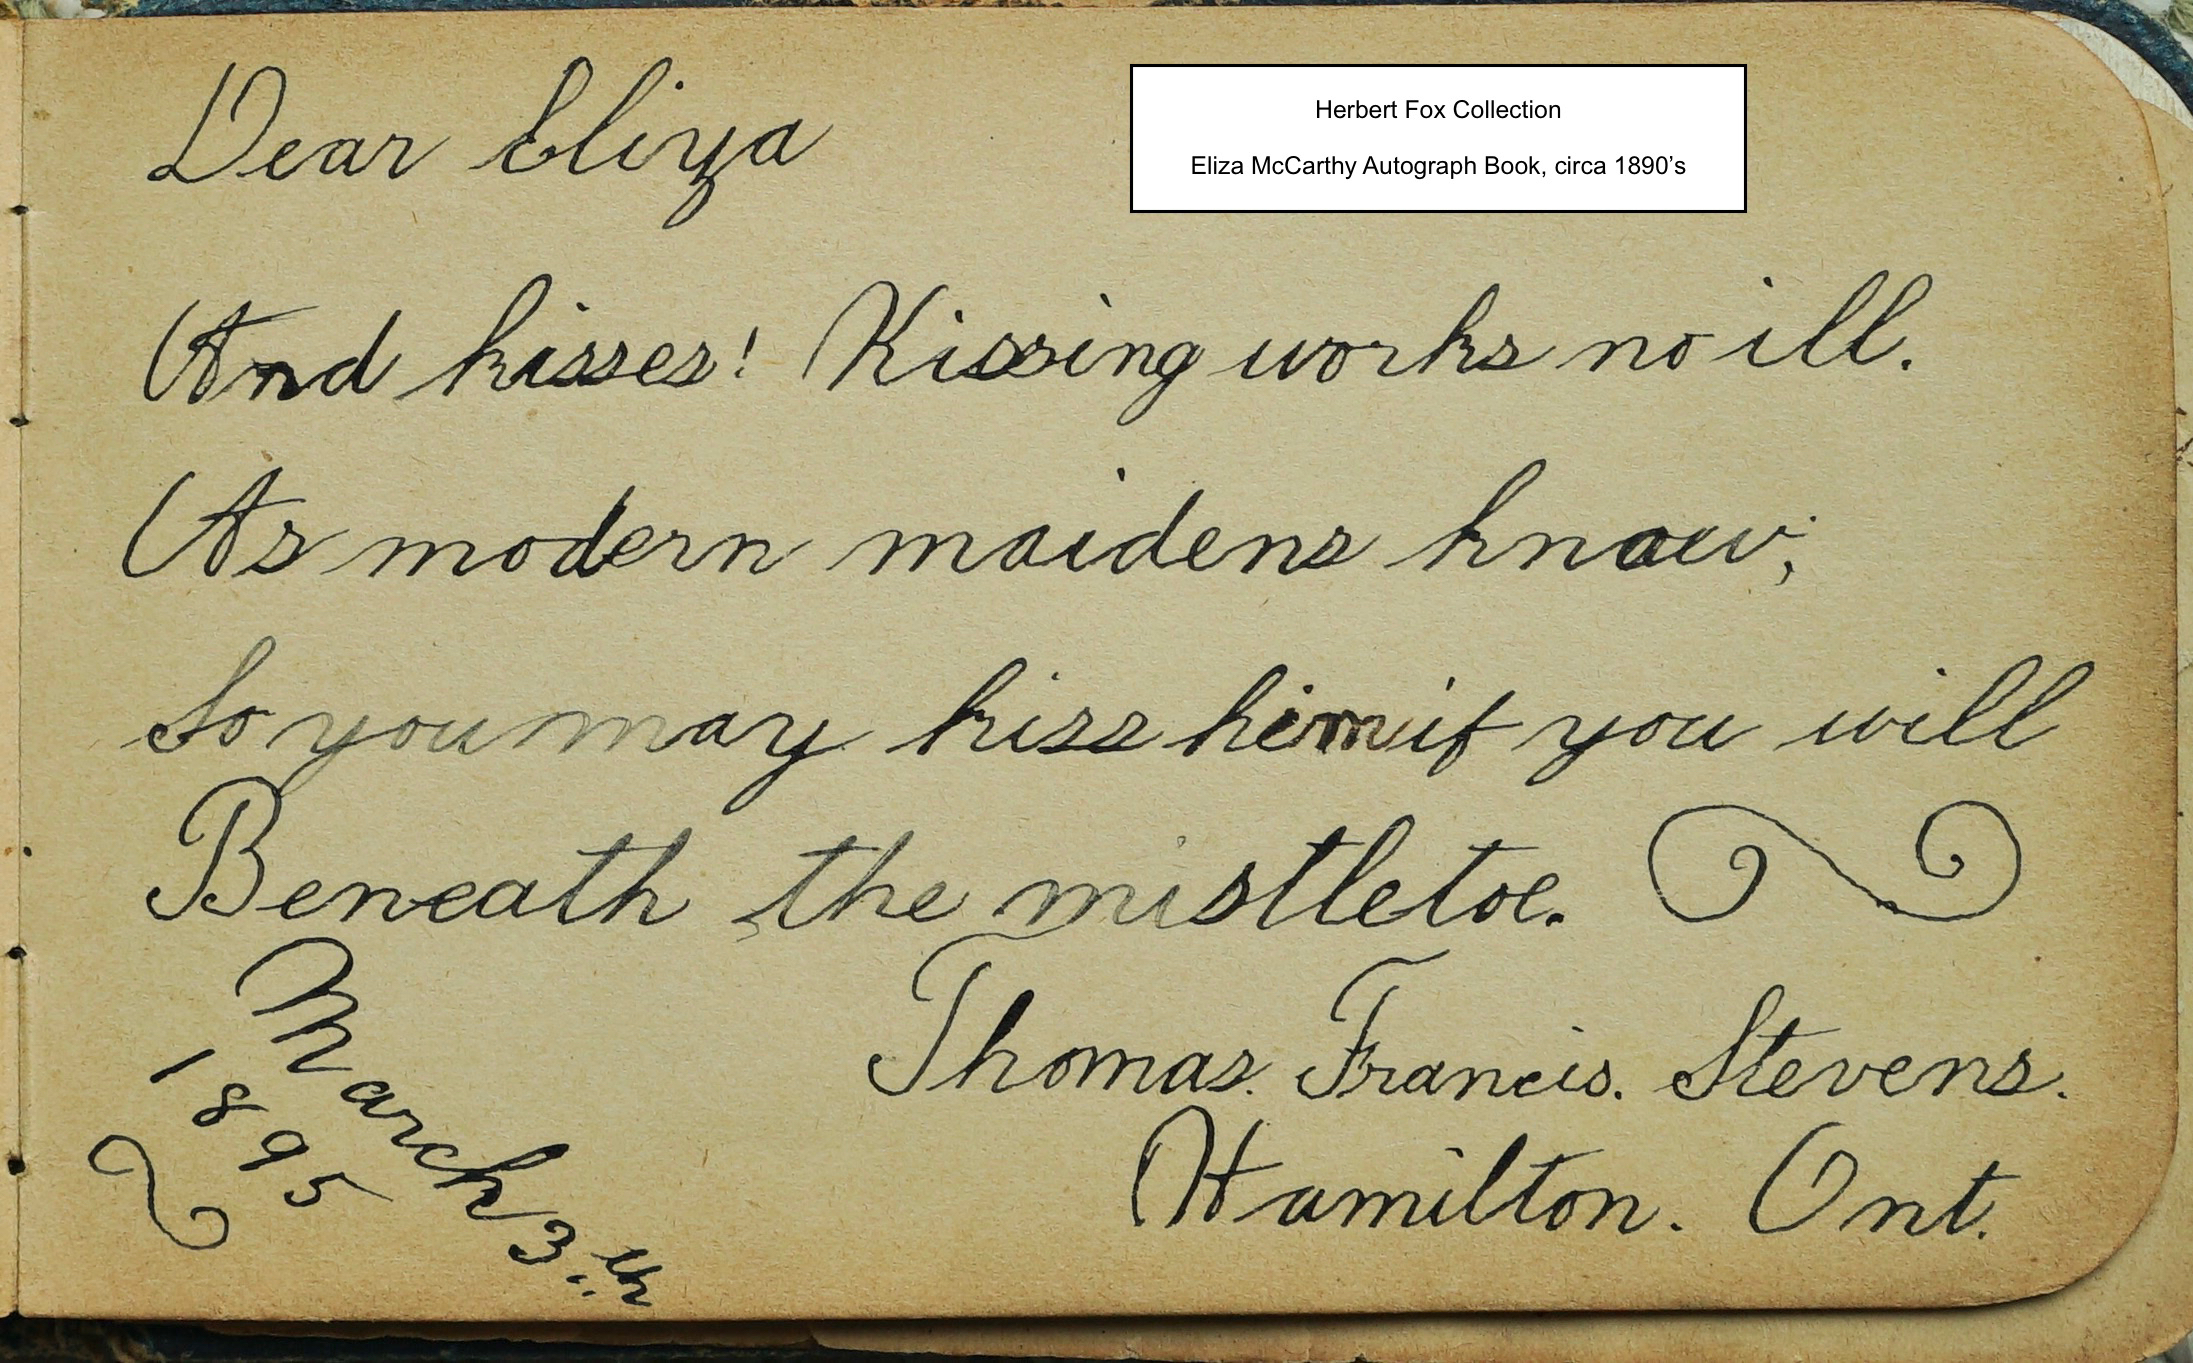 Dear Eliza
Herbert Fox Collection
Eliza McCarthy Autograph Book, circa 1890’s
And kisses! Kissing works no ill.
As modern maidens know;
So you may kiss him if you will
Beneath the mistletoe.
Thomas. Francis. Stevens.
Hamilton. Ont.
March 3th
1895